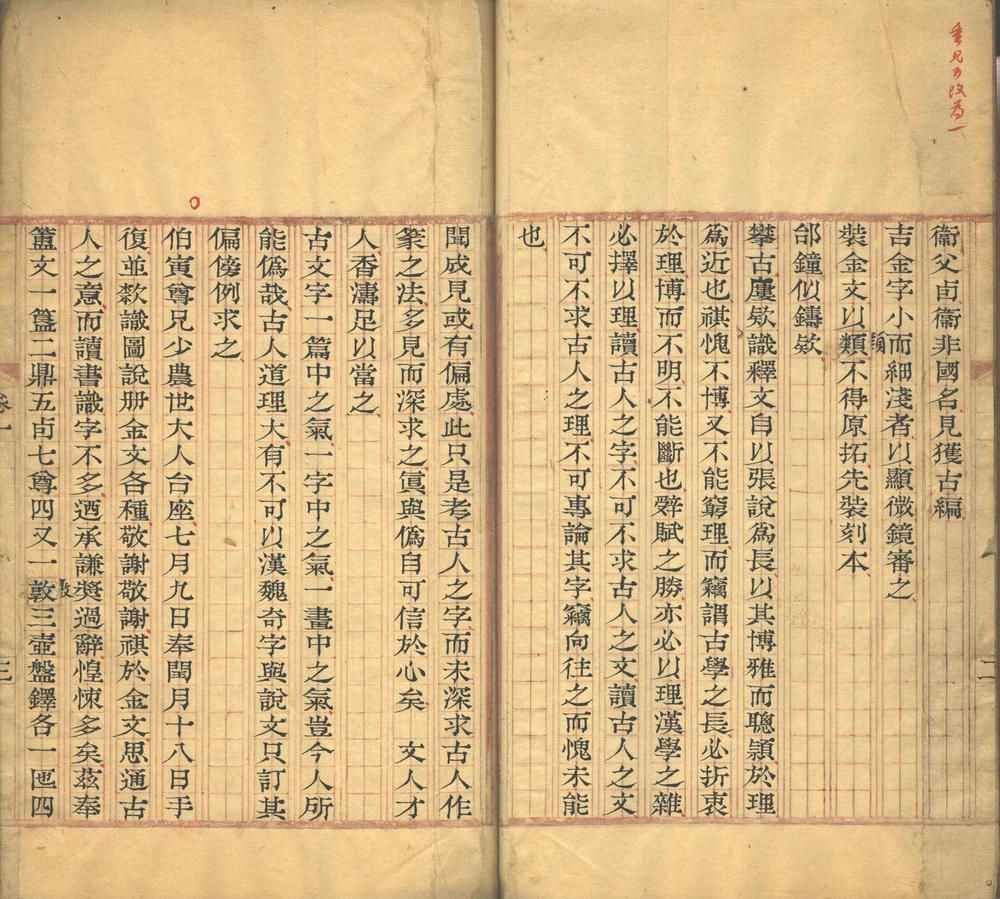 重見可改為一
衞父卣衞非國名見獲古編
吉金字小而細淺者以顯微鏡審之
裝金文以類不得原拓先裝刻本
類
郃鐘似鑄欵
攀古廔欵識釋文自以張說為長以其博雅而聰頴於理
為近也祺愧不博又不能窮理而竊謂古學之長必折衷
於理博而不明不能斷也辭賦之勝亦必以理漢學之雜
必擇以理讀古人之字不可不求古人之文讀古人之文
不可不求古人之理不可專論其字竊向往之而愧未能
也
二
聞成見或有偏處此只是考古人之字而未深求古人作
篆之法多見而深求之眞與僞自可信於心矣 文人才
人香濤足以當之
古文字一篇中之氣一字中之氣一畫中之氣豈今人所
能僞哉古人道理大有不可以漢魏奇字與說文只訂其
偏傍例求之
伯寅尊兄少農世大人台座七月九日奉閏月十八日手
復並欵識圖說册金文各種敬謝敬謝祺於金文思通古
人之意而讀書識字不多迺承謙奬過辭惶悚多矣茲奉
簠文一簋二鼎五卣七尊四又一敦三壺盤鐸各一匜四
卷一
三